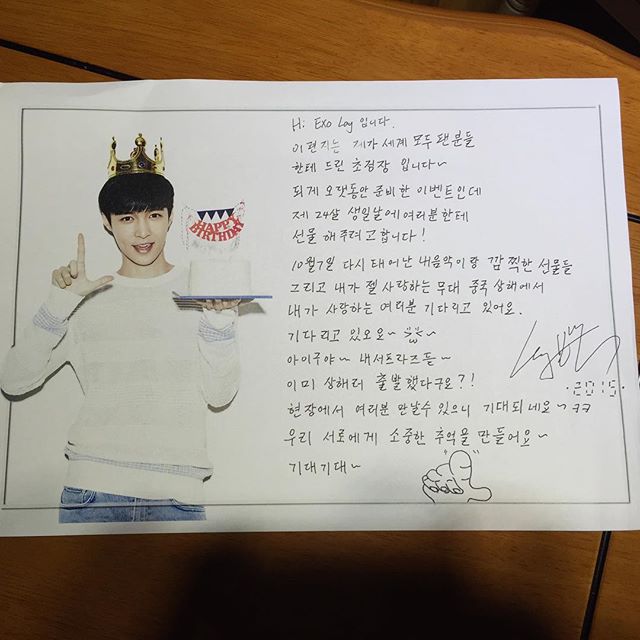 HAPPY
BIRTHDAY
Hi Exo Lay 입니다.
이 편지는 제가 세계 모두 팬분들
한테 드린 초점장 입니다~
되게 오랫동안 준비한 이벤트인데
제 24살 생일날에 여러분한테
선물 해주려고합니다!
10월7일 다시 태어난 내음악이랑 깜짝한 선물들
그리고 내가 젤 사랑하는 무대 중국 상해에서
내가 사랑하는 여러분 기다리고 있어요.
기다리고 있오요~
아이구야~ 내서프라즈들~
이미 상해러 출발했다구요?!
현장에서 여러분 만날수 있으니 기대되네요~ㅋㅋ
우리 서로에게 소중한 추억을 만들어요~
기대기대~
Lay
·2015·